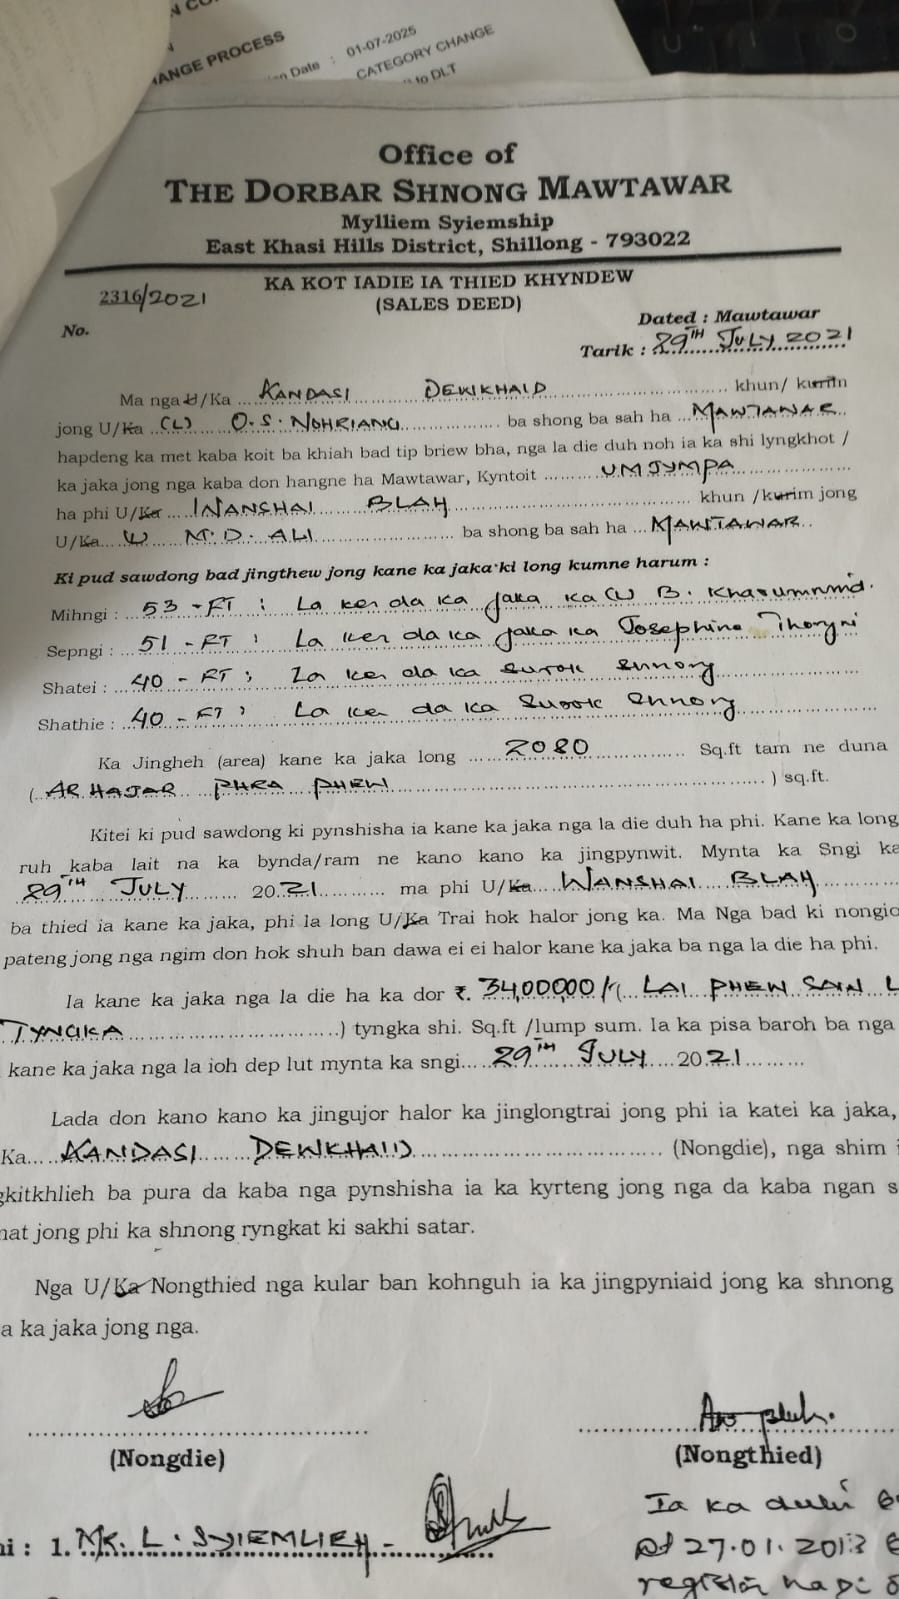 ANGE PROCESS
Date : 01-07-2025
CATEGORY CHANGE
to DLT
Office of
THE DORBAR SHNONG MAWTAWAR
Mylliem Syiemship
East Khasi Hills District, Shillong - 793022
KA KOT IADIE IA THIED KHYNDEW
(SALES DEED)
No. 2316/2021
Dated : Mawtawar
Tarik : 29TH JULY 2021
Ma nga U/Ka KANDASI DEWKHAID khun/ kurim
jong U/Ka (L) O.S. NOHRIANG ba shong ba sah ha MAWTAWAR
hapdeng ka met kaba koit ba khiah bad tip briew bha, nga la die duh noh ia ka shi lyngkhot /
ka jaka jong nga kaba don hangne ha Mawtawar, Kyntoit UMJYMPA
ha phi U/Ka WANSHAI BLAH khun /kurim jong
U/Ka (L) M.D. ALI ba shong ba sah ha MAWTAWAR
Ki pud sawdong bad jingthew jong kane ka jaka ki long kumne harum :
Mihngi : 53 - FT : La ker da ka jaka ka (L) B.
Sepngi : 51 - FT : La ker da ka jaka ka Josephine
Shatei : 40 - FT : La ker da ka surok shnong
Shathie : 40 - FT : La ker da ka surok shnong
Ka Jingheh (area) kane ka jaka long 2080 Sq.ft tam ne duna
( AR HAJAR PHRA PHEW ) sq.ft.
Kitei ki pud sawdong ki pynshisha ia kane ka jaka nga la die duh ha phi. Kane ka long
ruh kaba lait na ka bynda/ram ne kano kano ka jingpynwit. Mynta ka Sngi ka
29TH JULY 2021 ma phi U/Ka WANSHAI BLAH
ba thied ia kane ka jaka, phi la long U/Ka Trai hok halor jong ka. Ma Nga bad ki nongio
pateng jong nga ngim don hok shuh ban dawa ei ei halor kane ka jaka ba nga la die ha phi.
Ia kane ka jaka nga la die ha ka dor ₹. 34,00,000/- ( LAI PHEW SAW L
TYNGKA ) tyngka shi. Sq.ft /lump sum. Ia ka pisa baroh ba nga
kane ka jaka nga la ioh dep lut mynta ka sngi 29TH JULY 2021
Lada don kano kano ka jingujor halor ka jinglongtrai jong phi ia katei ka jaka,
Ka KANDASI DEWKHAID (Nongdie), nga shim
gkitkhlieh ba pura da kaba nga pynshisha ia ka kyrteng jong nga da kaba ngan s
mat jong phi ka shnong ryngkat ki sakhi satar.
Nga U/Ka Nongthied nga kular ban kohnguh ia ka jingpyniaid jong ka shnong
a ka jaka jong nga.
(Nongdie)
(Nongthied)
i : 1. MR. L. SYIEMLIEH
Ia ka
Dt 27.01.2013